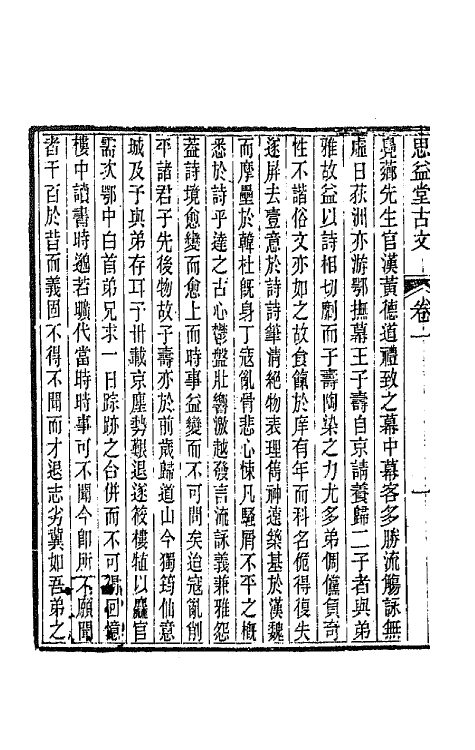 思益堂古文 卷一 一
覺薌先生官漢黃德道禮致之幕中幕客多勝流觴詠無
虛日荻洲亦游鄂撫幕王子壽自京請養歸二子者與弟
雅故益以詩相切劘而子壽陶染之力尤多弟倜儻負奇
性不諧俗文亦如之故食餼於庠有年而科名俛得復失
遂屏去壹意於詩詩筆淸絕物表理儁神遠築基於漢魏
而摩壘於韓杜旣身丁寇亂骨悲心悚凡騷屑不平之槪
悉於詩乎達之古心鬱盤壯響激越發言流詠義兼雅怨
蓋詩境愈變而愈上而時事益變而不可問矣迨寇亂削
平諸君子先後物故子壽亦於前歲歸道山今獨筠仙意
城及予與弟存耳予卅載京塵勢艱退逐筱樓牰以麤官
需次鄂中白首弟兄求一日踪跡之合併而不可得回憶
樓中讀書時邈若曠代當時時事可不聞今卽所不願聞
者千百於昔而義固不得不聞而才退志劣冀如吾弟之